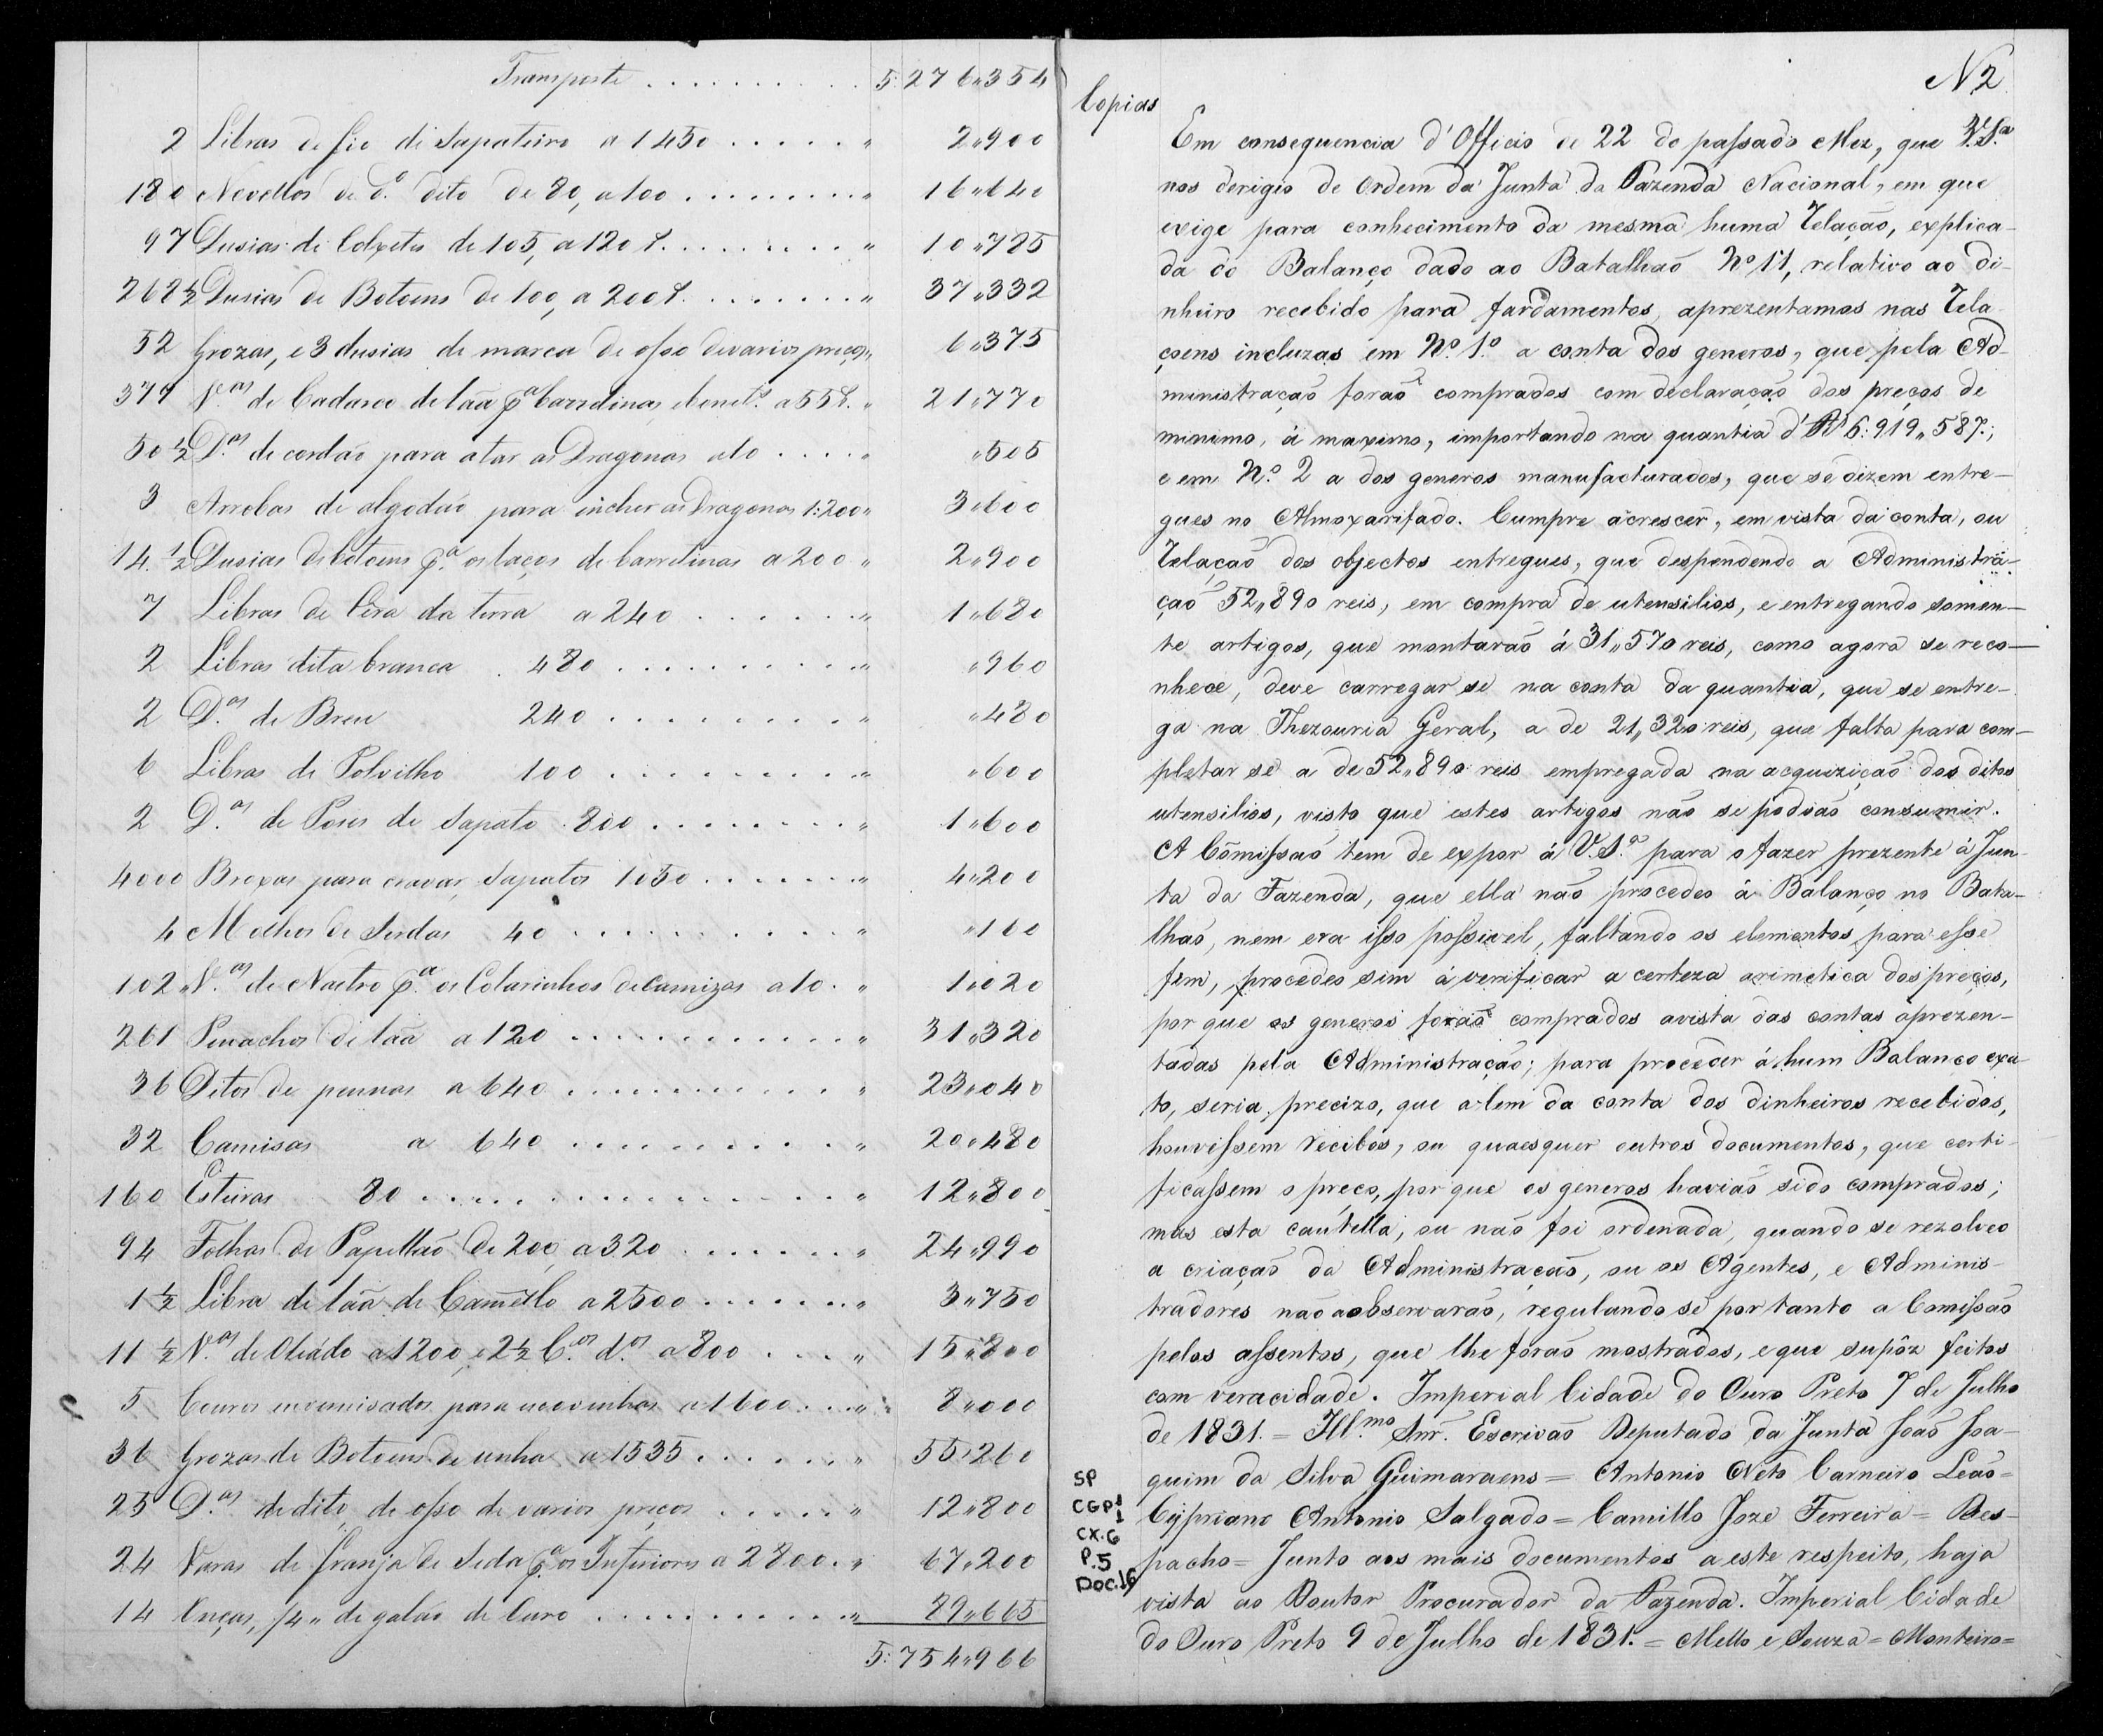 Transporte . . . . . . . . . . 5:276"354
2 Libras de fio de Sapateiro a 1450 . . . . . " 2"900
180 Novellos de d.º dito de 80, a 100 . . . . . . . . " 16"640
97 Dusias de Colxetes de 105, a 120 r. . . . . . . . . " 10"785
268 1/2 Dusias de Botoens de 100, a 200 r. . . . . . . . " 37"332
52 Grozas, e 3 dusias de marca de osso de varios preços " 6"375
379 V.as de Cadarço de lãa p.a barretinas, e bonet.s a 55 r. " 21"770
50 1/2 D.as de cordão para atar as Dragonas a 10 . . . . " "505
3 Arrobas de algodão para incher as Dragonas 1:200 " 3"600
14 1/2 Dusias de botoens p.a os laços de barretinas a 200 " 2"900
7 Libras de Cêra da terra a 240 . . . . . . . " 1"680
2 Libras dita branca . 480 . . . . . . . . . . " "960
2 D.as de Breu 240 . . . . . . . . . " "480
6 Libras de Polvilho 100 . . . . . . . . . . " "600
2 D.as de Poses de Sapato 800 . . . . . . . . " 1"600
4000 Broxas para cravar Sapatos 1050 . . . . . . . " 4"200
4 Molhos de Serdas 40 . . . . . . . . . . . " "160
102 V.as de Nastro p.a os Colarinhos de Camizas a 10 . " 1"020
261 Penachos de lãa a 120 . . . . . . . . . . . . " 31"320
36 Ditos de pennas a 640 . . . . . . . . . . . . " 23"040
32 Camisas a 640 . . . . . . . . . . . " 20"480
160 Esteiras 80 . . . . . . . . . . . . . . . . . " 12"800
94 Folhas de Papellaõ de 200, a 320 . . . . . . . " 24"990
1 1/2 Libra de lãa de Camello a 2500 . . . . . . . " 3"750
11 1/2 V.as de Oleádo a 1200, e 2 1/2 C.os d.os a 800 . . . . " 15"800
5 Couros envernisados para a 1600 . . . " 8"000
36 Grozas de Botoens de unha a 1535 . . . . . . . " 55"260
25 D.as de dito, de osso de varios preços . . . . . " 12"800
24 Varas de franja de Seda p.a os Inferiores a 2800 . " 67"200
14 Onças, /4 " de galão de Ouro . . . . . . . . . . . " 89"665
5:754"966
Copias
N 2
Em consequencia d'Officio de 22 do passado Mez, que V.S.a
nos derigio de Ordem da Junta da Fazenda Nacional, em que
exige para conhecimento da mesma huma Relação, explica-
da do Balanço dado ao Batalhaõ Nº 11, relativo ao di-
nheiro recebido para fardamentos, aprezentamos nas Rela
çoens incluzas em N.º 1.º a conta dos generos, que pela Ad-
ministraçaõ foraõ comprados com declaraçaõ dos preços de
minimo, á maximo, importando na quantia d' Rs 6:919"587;
e em N.º 2 a dos generos manufacturados, que se dizem entre-
gues no Almoxarifado. Cumpre acrescer, em vista da conta, ou
Relaçaõ dos objectos entregues, que despendendo a Administra-
çaõ 52"890 reis, em compra de utensilios, e entregando somen-
te artigos, que montaraõ á 31"570 reis, como agora se reco-
nhece, deve carregar se na conta da quantia, que se entre-
ga na Thezouria Geral, a de 21"320 reis, que falta para com-
pletar se a de 52"890 reis empregada na acquiziçaõ dos ditos
utensilios, visto que estes artigos não se podiaõ consumir.
A Cõmissaõ tem de expor á V.S.a para o fazer prezente á Jun
ta da Fazenda, que ella naõ procedeo á Balanço no Bata-
lhaõ, nem era isso possivel, faltando os elementos para esse
fim, procedeo sim á verificar a certeza arimetica dos preços,
por que os generos foraõ comprados avista das contas aprezen-
tadas pela Administraçaõ; para proceder á hum Balanco exa
to, seria precizo, que alem da conta dos dinheiros recebidos,
houvissem recibos, ou quaesquer outros documentos, que certi-
ficassem o preco, por que os generos haviaõ sido comprados;
mas esta cautella, ou naõ foi ordenada, quando se rezolveo
a criaçaõ da Administracaõ, ou os Agentes, e Adminis-
tradores não a observaraõ, regulando se por tanto a Comissaõ
pelos assentos, que lhe foraõ mostrados, e que supôz feitos
com veracidade. Imperial Cidade do Ouro Preto 7 de Julho
de 1831. = Ill.mo Snr. Escrivaõ Deputado da Junta Joaõ Joa-
quim da Silva Guimaraens = Antonio Neto Carneiro Leaõ =
Cypriano Antonio Salgado = Camillo Joze Ferreira = Des-
pacho = Junto aos mais documentos a este respeito, haja
vista ao Doutor Procurador da Fazenda. Imperial Cidade
do Ouro Preto 9 de Julho de 1831. = Mello e Souza = Monteiro =
SP
CGP1
1
CX.6
P.5
DOC.16